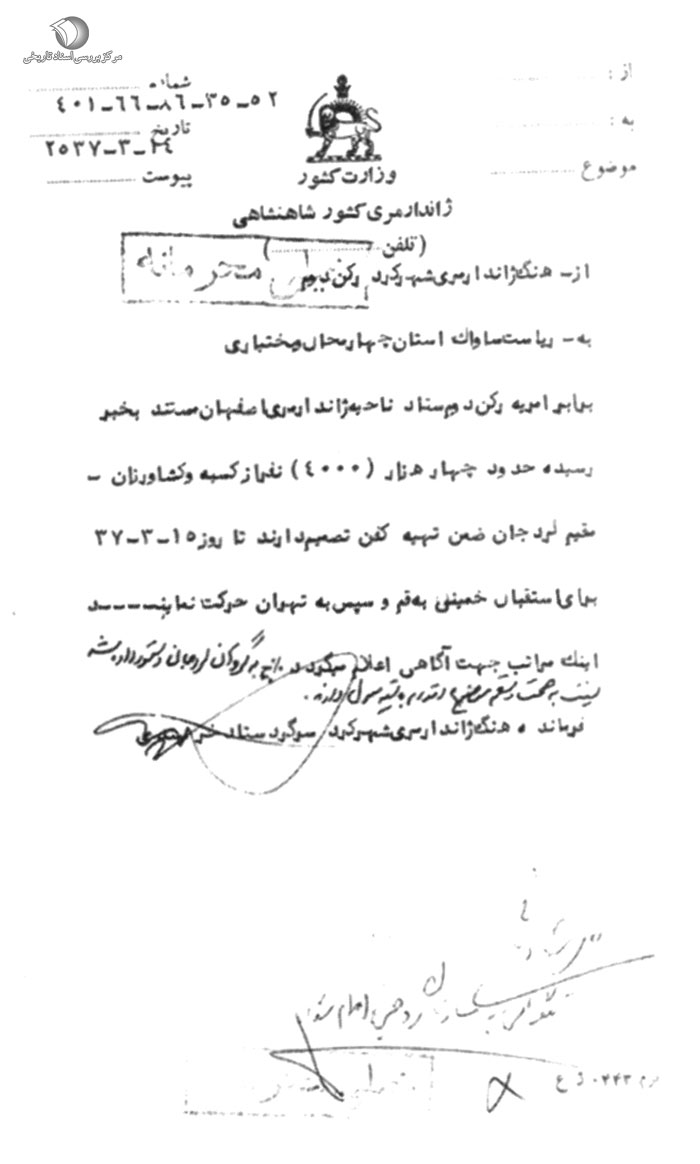 مرکز بررسی اسناد تاریخی
از :
شماره
۴۰۱-۶۶-۸۶-۳۵-۵۲
به :
تاریخ
۲۵۳۷-۳-۲۴
موضوع
پیوست
وزارت کشور
ژاندارمری کشور شاهنشاهی
(تلفن )
خیلی محرمانه
از- هنگ ژاندارمری شهرکرد رکن دوم
به- ریاست ساواک استان چهارمحال وبختیاری
برابر امریه رکن دوم ستاد ناحیه ژاندارمری اصفهان مستند بخبر
رسیده حدود چهار هزار (۴۰۰۰) نفراز کسبه وکشاورزان -
مقیم لردجان ضمن تهیه کفن تصمیم دارند تا روز ۱۵-۳-۳۷
برای استقبال خمینی به قم و سپس به تهران حرکت نماینـــــد
اینک مراتب جهت آگاهی اعلام میگردد به گروهان لردجان دستور داده شد
نسبت به صحت و سقم موضوع
فرمانده هنگ ژاندارمری شهرکرد سرگرد ستاد
۰۴۴۳ ژ ع